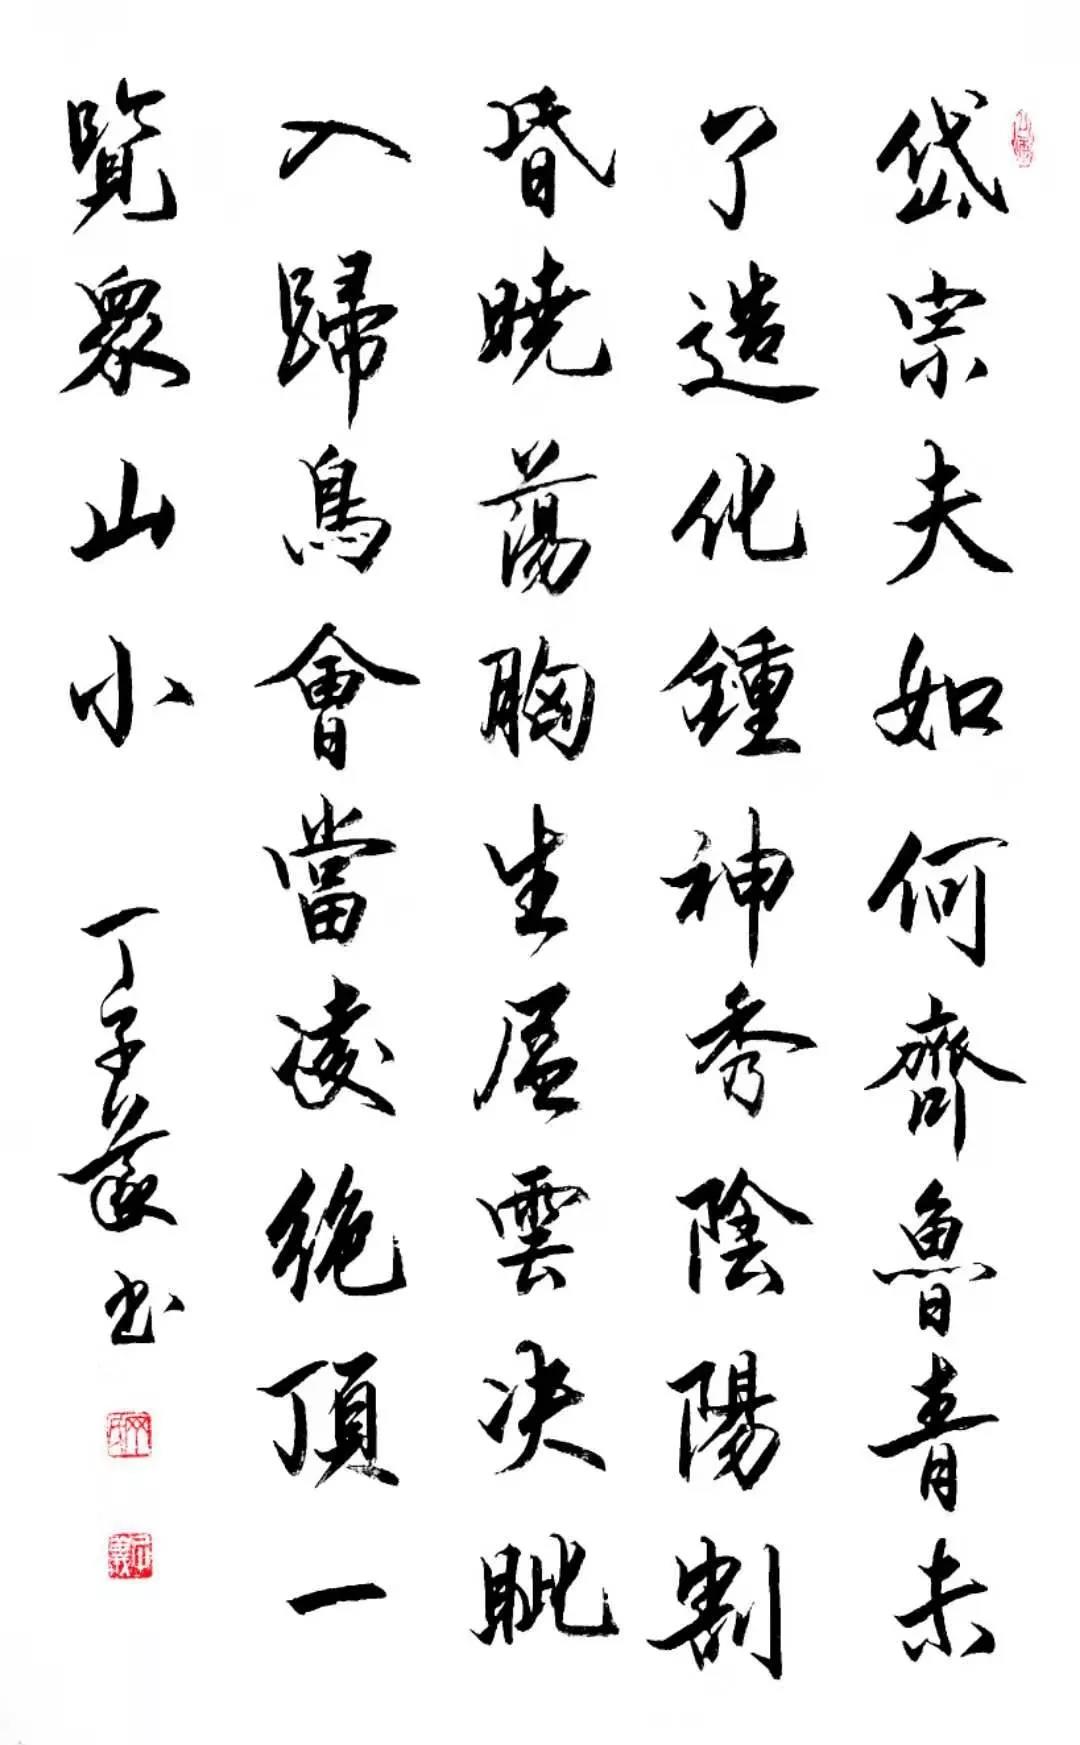 岱宗夫如何齊魯青未
了造化鍾神秀陰陽割
昏曉蕩胸生層雲決眦
入歸鳥會當凌絶頂一
覽眾山小
丁子義书